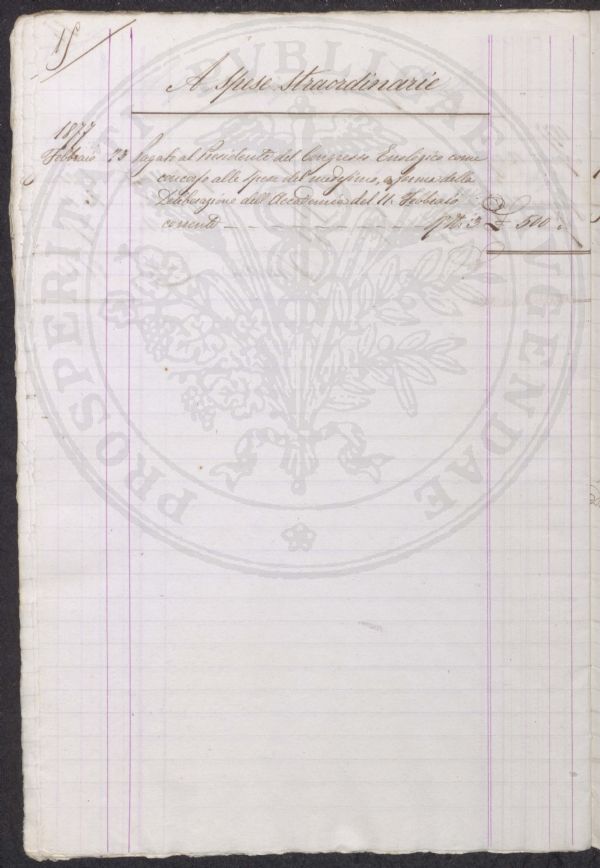 15
A Spese Straordinarie
1877
Febbraio 23 Pagato al Presidente del Congresso Enologico come
concorso alle spese del medesimo, a forma della
Deliberazione dell'Accademia del 11. Febbraio
corrente
3 £ 500
PROSPERITATI PUBLICAE AUGENDAE